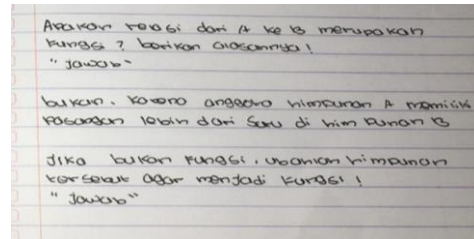 Apakah relasi dari A ke B merupakan
fungsi ? berikan alasannya !
"Jawab"
bukan. karena anggota himpunan A memiliki
pasangan lebih dari satu di himpunan B
Jika bukan fungsi, ubahlah himpunan
tersebut agar menjadi fungsi !
"Jawab"